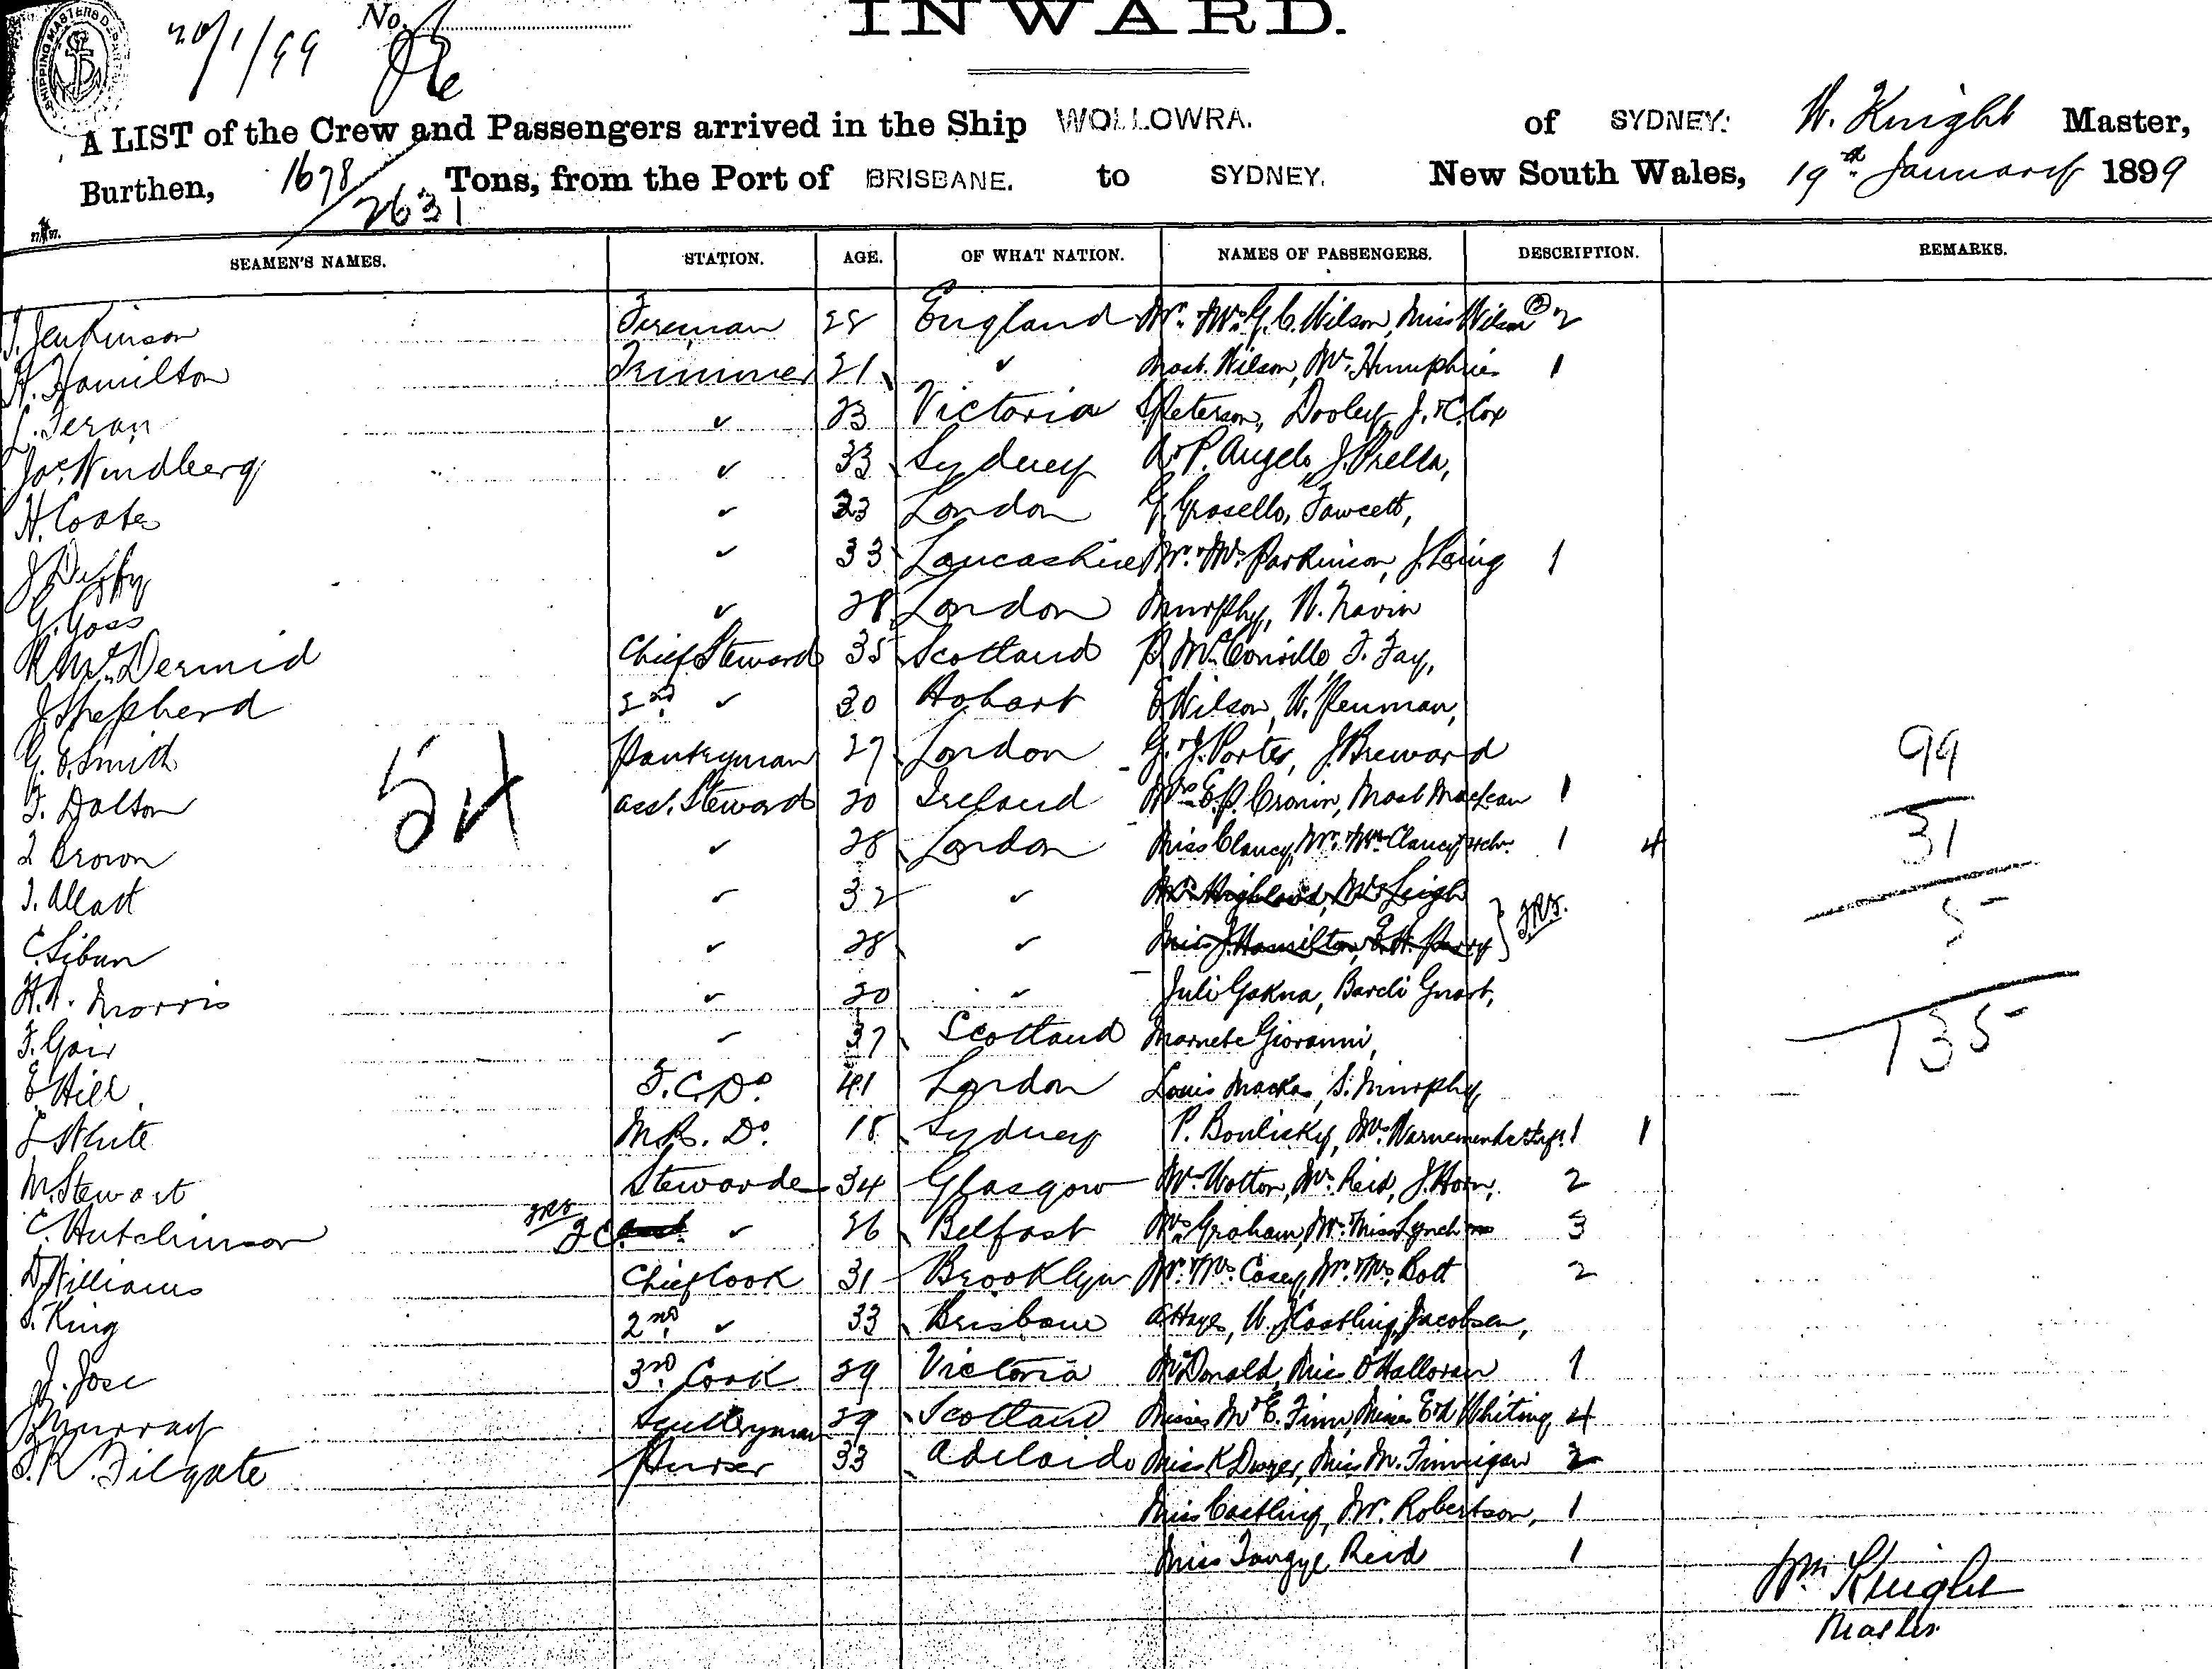 SHIPPING MASTERS DEPARTMENT
20/1/99 No.
INWARD.
A LIST of the Crew and Passengers arrived in the Ship WOLLOWRA. of SYDNEY: W. Knight Master,
Burthen, 1678/2631 Tons, from the Port of BRISBANE. to SYDNEY. New South Wales, 19th January 1899
SEAMEN'S NAMES. STATION. AGE. OF WHAT NATION. NAMES OF PASSENGERS. DESCRIPTION. REMARKS.
J. Jenkinson Fireman 28 England Mr. & Mrs. G. C. Wilson, Miss Wilson 2
H. Hamilton Trimmer 21 ✓ Mast. Wilson, Mr. Humphries 1
L. Feran ✓ 23 Victoria Peterson, Dooley, J. & C. Cox
Jos. Windberg ✓ 33 Sydney & P. Angelo, J. Prella,
H. Coate ✓ 23 London G. Grasello, Fawcett,
J. Duffy ✓ 33 Lancashire Mr. & Mrs. Parkinson, J. Laing 1
G. Goss ✓ 28 London Murphy, W. Navin
R McDermid Chief Steward 35 Scotland P. McConville F. Fay,
J. Shepherd 2nd ✓ 30 Hobart E Wilson, W. Penman,
G. E. Smith Pantryman 27 London G. & J. Porter, J. Breward
F. Dalton asst. Steward 20 Ireland Mrs E. P. Cronin, Mast MacLean 1
Brown ✓ 28 London Miss Clancy, Mr. & Mrs. Clancy & 4 ch. 1 4
J. Allast ✓ 32 ✓ Mrs Highland, Mrs Leigh
C. Sibun ✓ 28 ✓ Miss J. Hamilton, E. H. Parry
H. A. Morris ✓ 20 ✓ Juli Gokna, Bardi Gnart,
F. Gair ✓ 37 Scotland Marnete Giovanni,
E Hill. F.C. Do. 41 London Louis Mackas, S. Murphy,
White M.R. Do. 18 Sydney P. Boulicky, Mrs. Warnemende & Inft. 1 1
M. Stewart Stewardes 34 Glasgow Mr. Wotton, Mr. Reid, J. Horn, 2
C. Hutchinson 2 C ✓ 26 Belfast Mrs. Graham, Mr. & Miss Lynch 3
D Williams Chief Cook 31 Brooklyn Mr. & Mrs. Casey, Mr. & Mrs. Bott 2
S. King 2nd. ✓ 33 Brisbane A Hayes, W. J. Costling, Jacobsen,
J. Jose 3rd. Cook 29 Victoria McDonald, Miss O'Halloran 1
J. Murray Scullryman 29 Scotland Misses M & E. Finn, Misses E & A Whiting 4
J. R. Filgate Purser 33 Adelaide Miss K Dwyer, Miss M. Finnigan 2
Miss Costling, J. W. Robertson, 1
Miss Tangye Reid 1
54
99
31
5
135
Wm Knight
Master